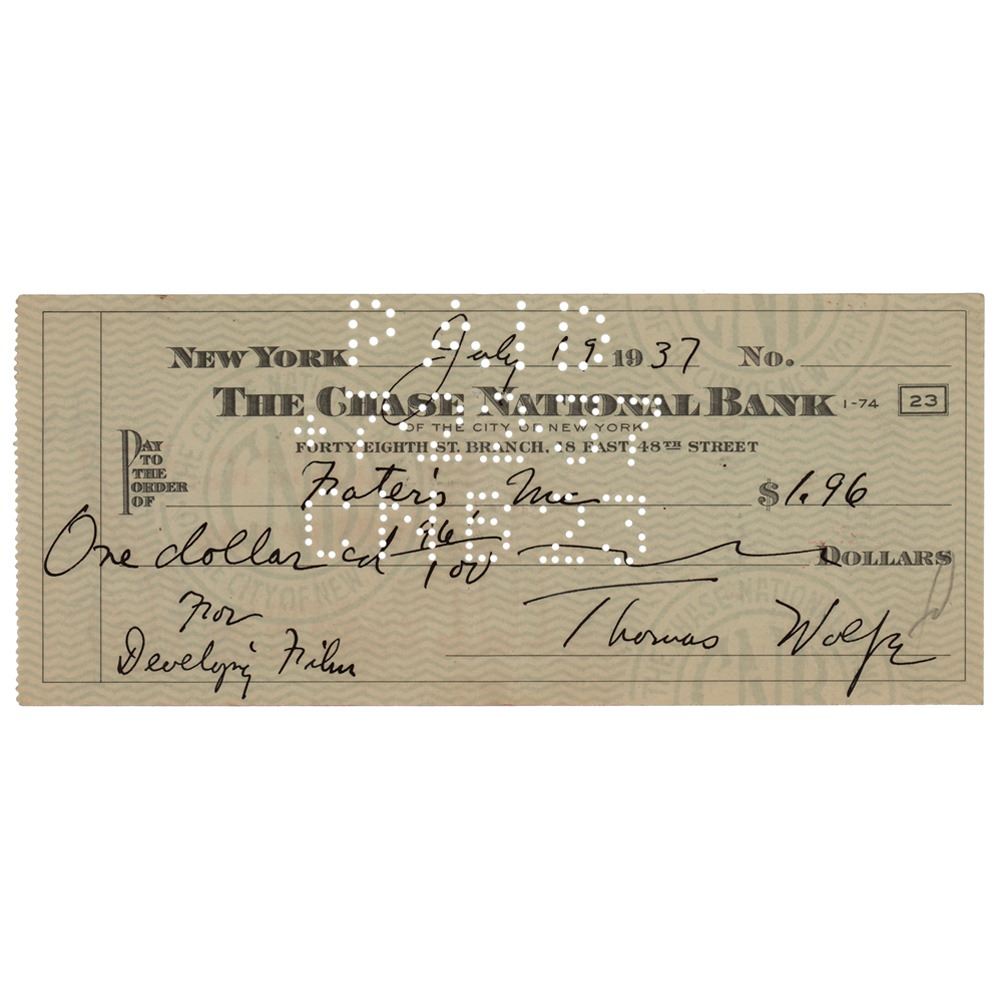 NEW YORK July 19 1937 No.
THE CHASE NATIONAL BANK 1-74 23
OF THE CITY OF NEW YORK
FORTY-EIGHTH ST. BRANCH, 18 EAST 48TH STREET
PAY TO THE ORDER OF Frater's Inc $1.96
One dollar and 96/100 DOLLARS
For
Developing Film
Thomas Wolfe
PAID